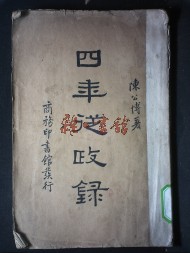 陳公博著
四年從政錄
商務印書館發行